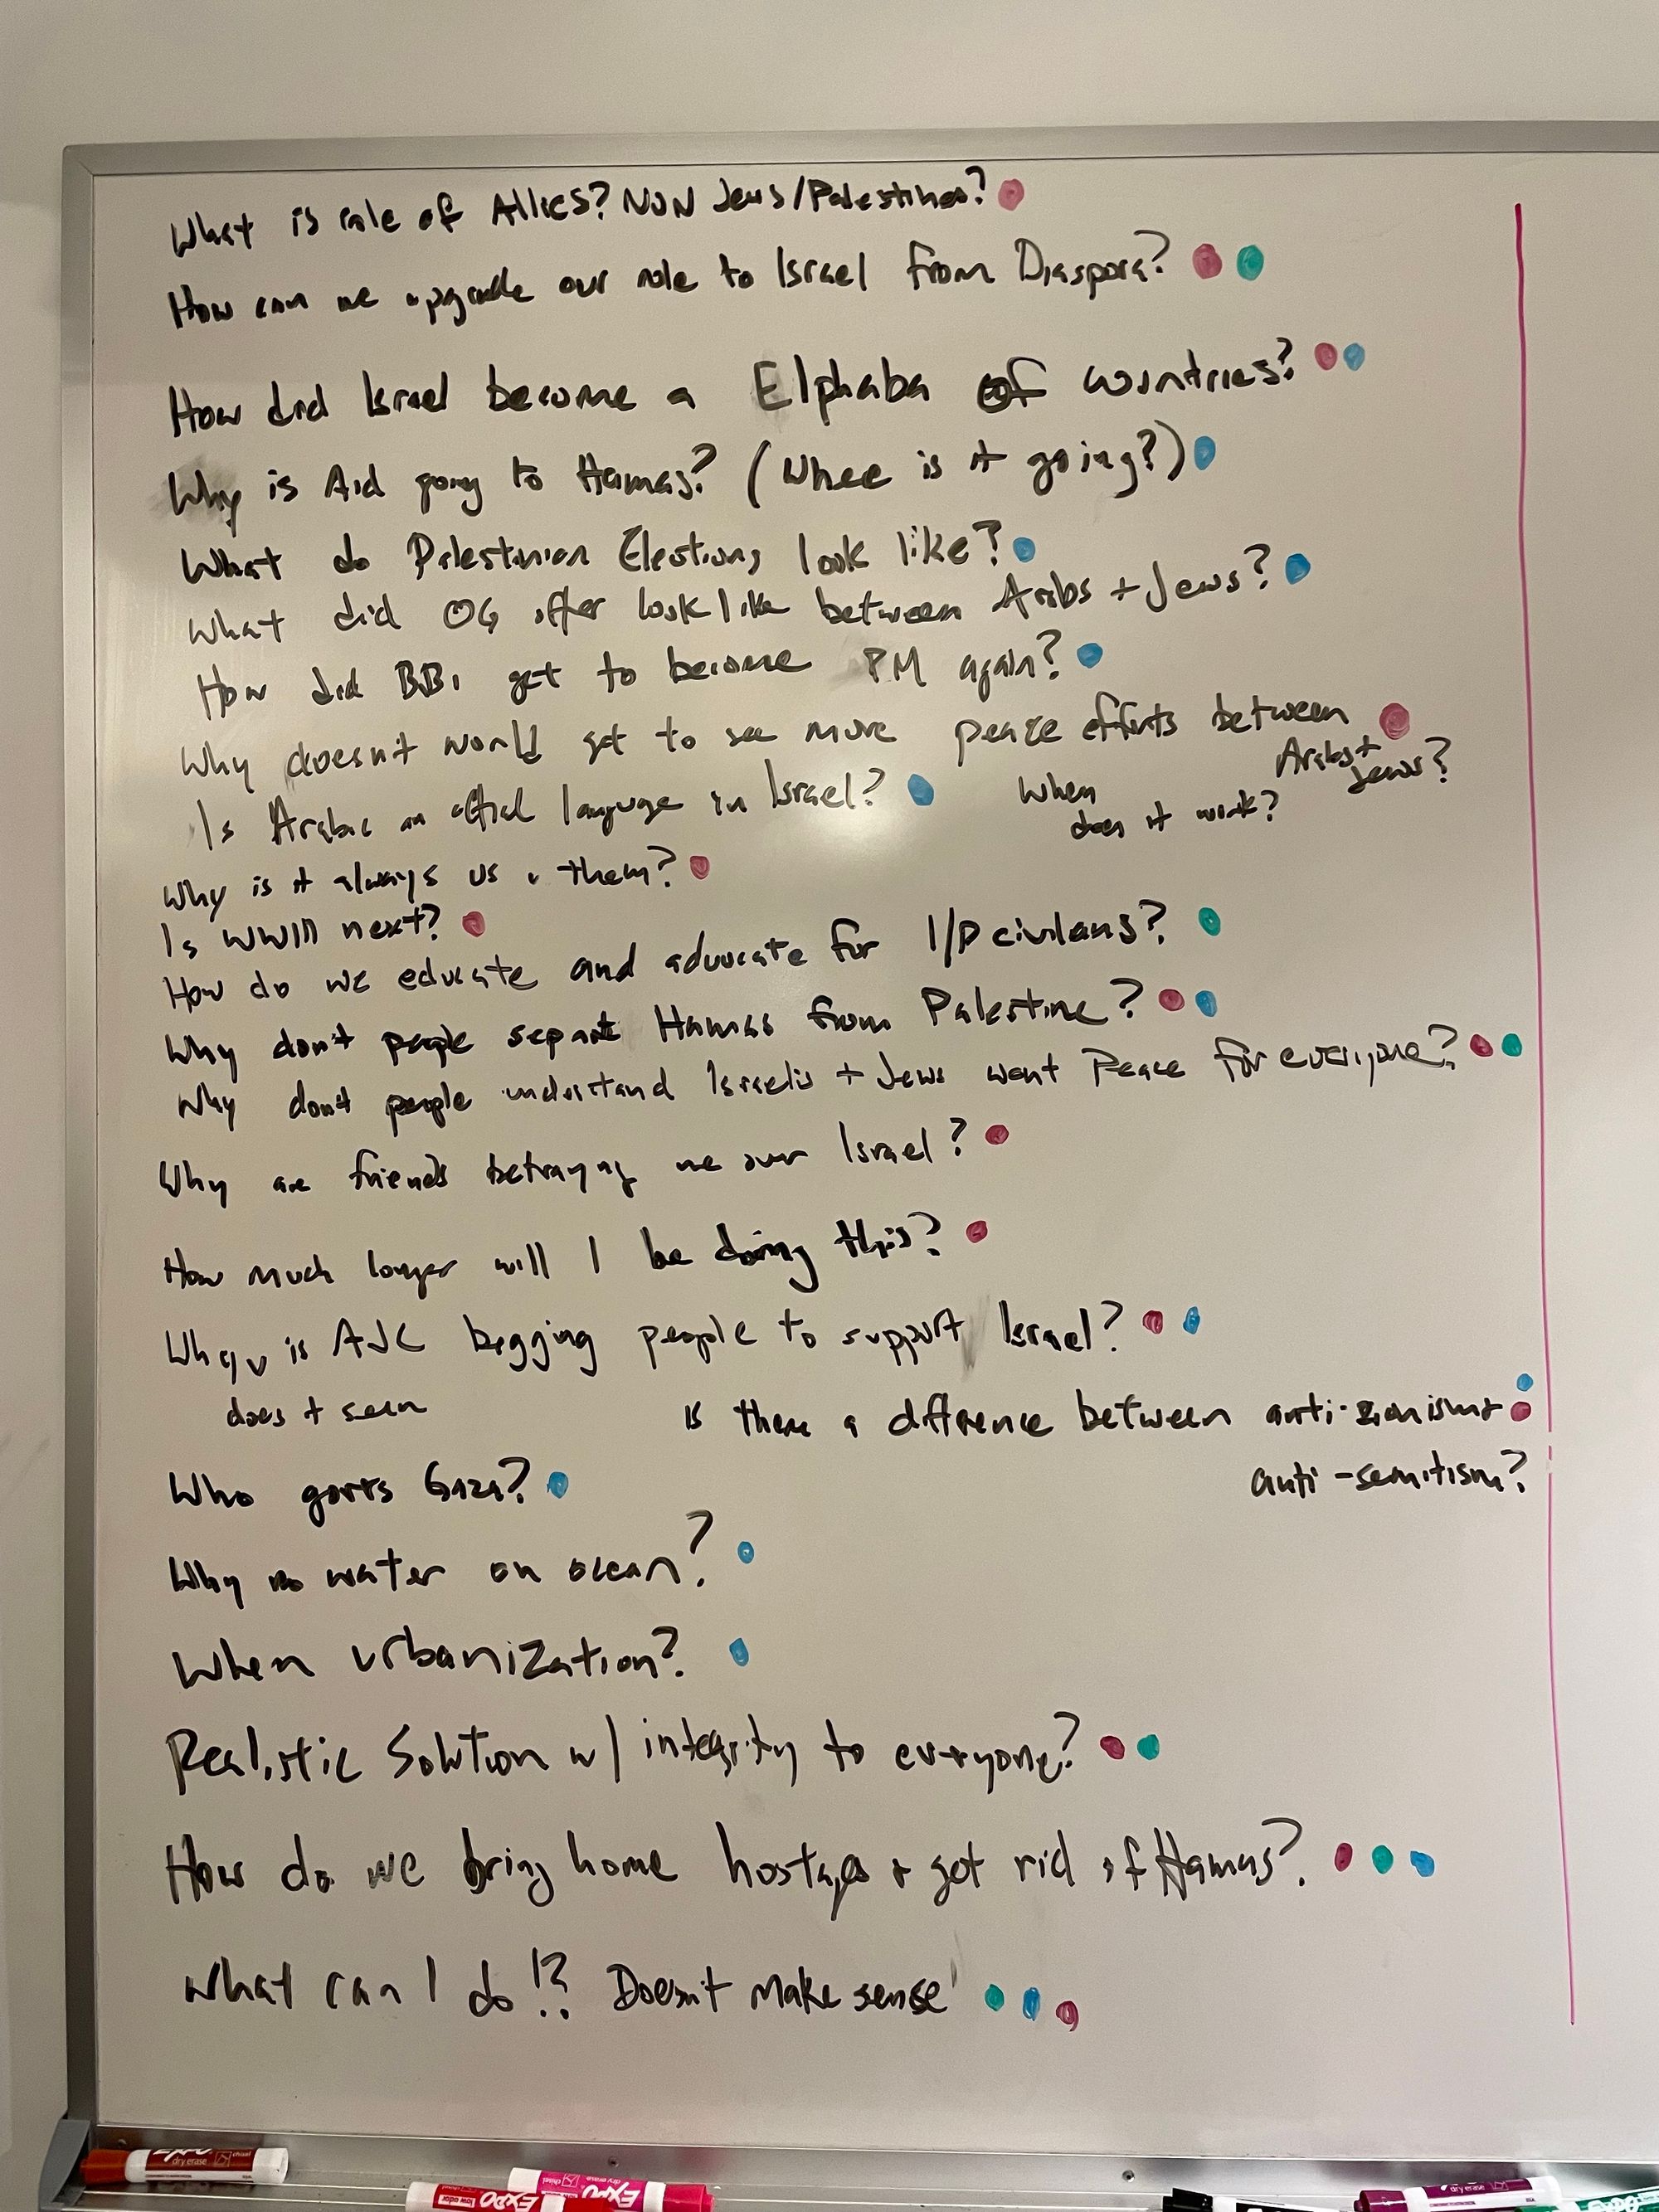 What is role of Allies? NON Jews/Palestines?
How can we upgrade our role to Israel from Diaspora?
How did Israel become a Elphaba of countries?
Why is Aid going to Hamas? (Where is it going?)
What do Palestinian Elections look like?
What did OG offer look like between Arabs + Jews?
How did BBi get to become PM again?
Why doesn't world get to see more peace efforts between
Arabs + Jews?
Is Arabic an official language in Israel?
When does it work?
Why is it always us v them?
Is WWIII next?
How do we educate and advocate for I/P civilans?
Why don't people separate Hamas from Palestine?
Why don't people understand Israelis + Jews want Peace for everyone?
Why are friends betraying me over Israel?
How much longer will I be doing this?
Why is AJC begging people to support Israel?
does it seem
Is there a difference between anti-zionism +
anti-semitism?
Who Gaza?
Why no water on ocean?
When urbanization?
Realistic Solution w/ integrity to everyone?
How do we bring home hostages + get rid of Hamas?
What can I do!? Doesn't make sense!
EXPO dry erase
EXPO low odor
EXPO dry erase chisel
dry erase